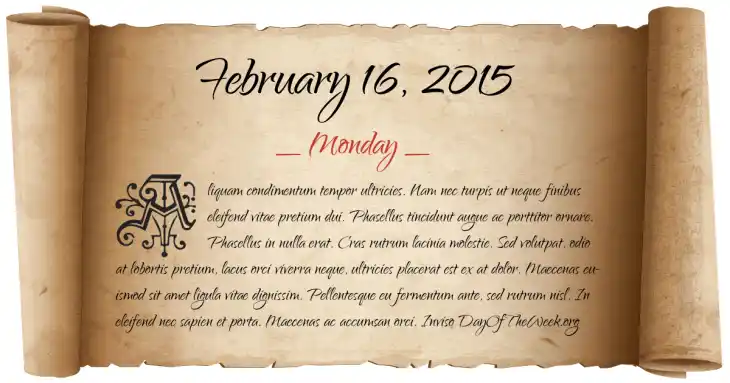 February 16, 2015
_ Monday _
Aliquam condimentum tempor ultricies. Nam nec turpis ut neque finibus
eleifend vitae pretium dui. Phasellus tincidunt augue ac porttitor ornare.
Phasellus in nulla erat. Cras rutrum lacinia molestie. Sed volutpat, odio
at lobortis pretium, lacus orci viverra neque, ultricies placerat est ex at dolor. Maecenas eu-
ismod sit amet ligula vitae dignissim. Pellentesque eu fermentum ante, sed rutrum nisl. In
eleifend nec sapien et porta. Maecenas ac accumsan orci. Invise DayOfTheWeek.org